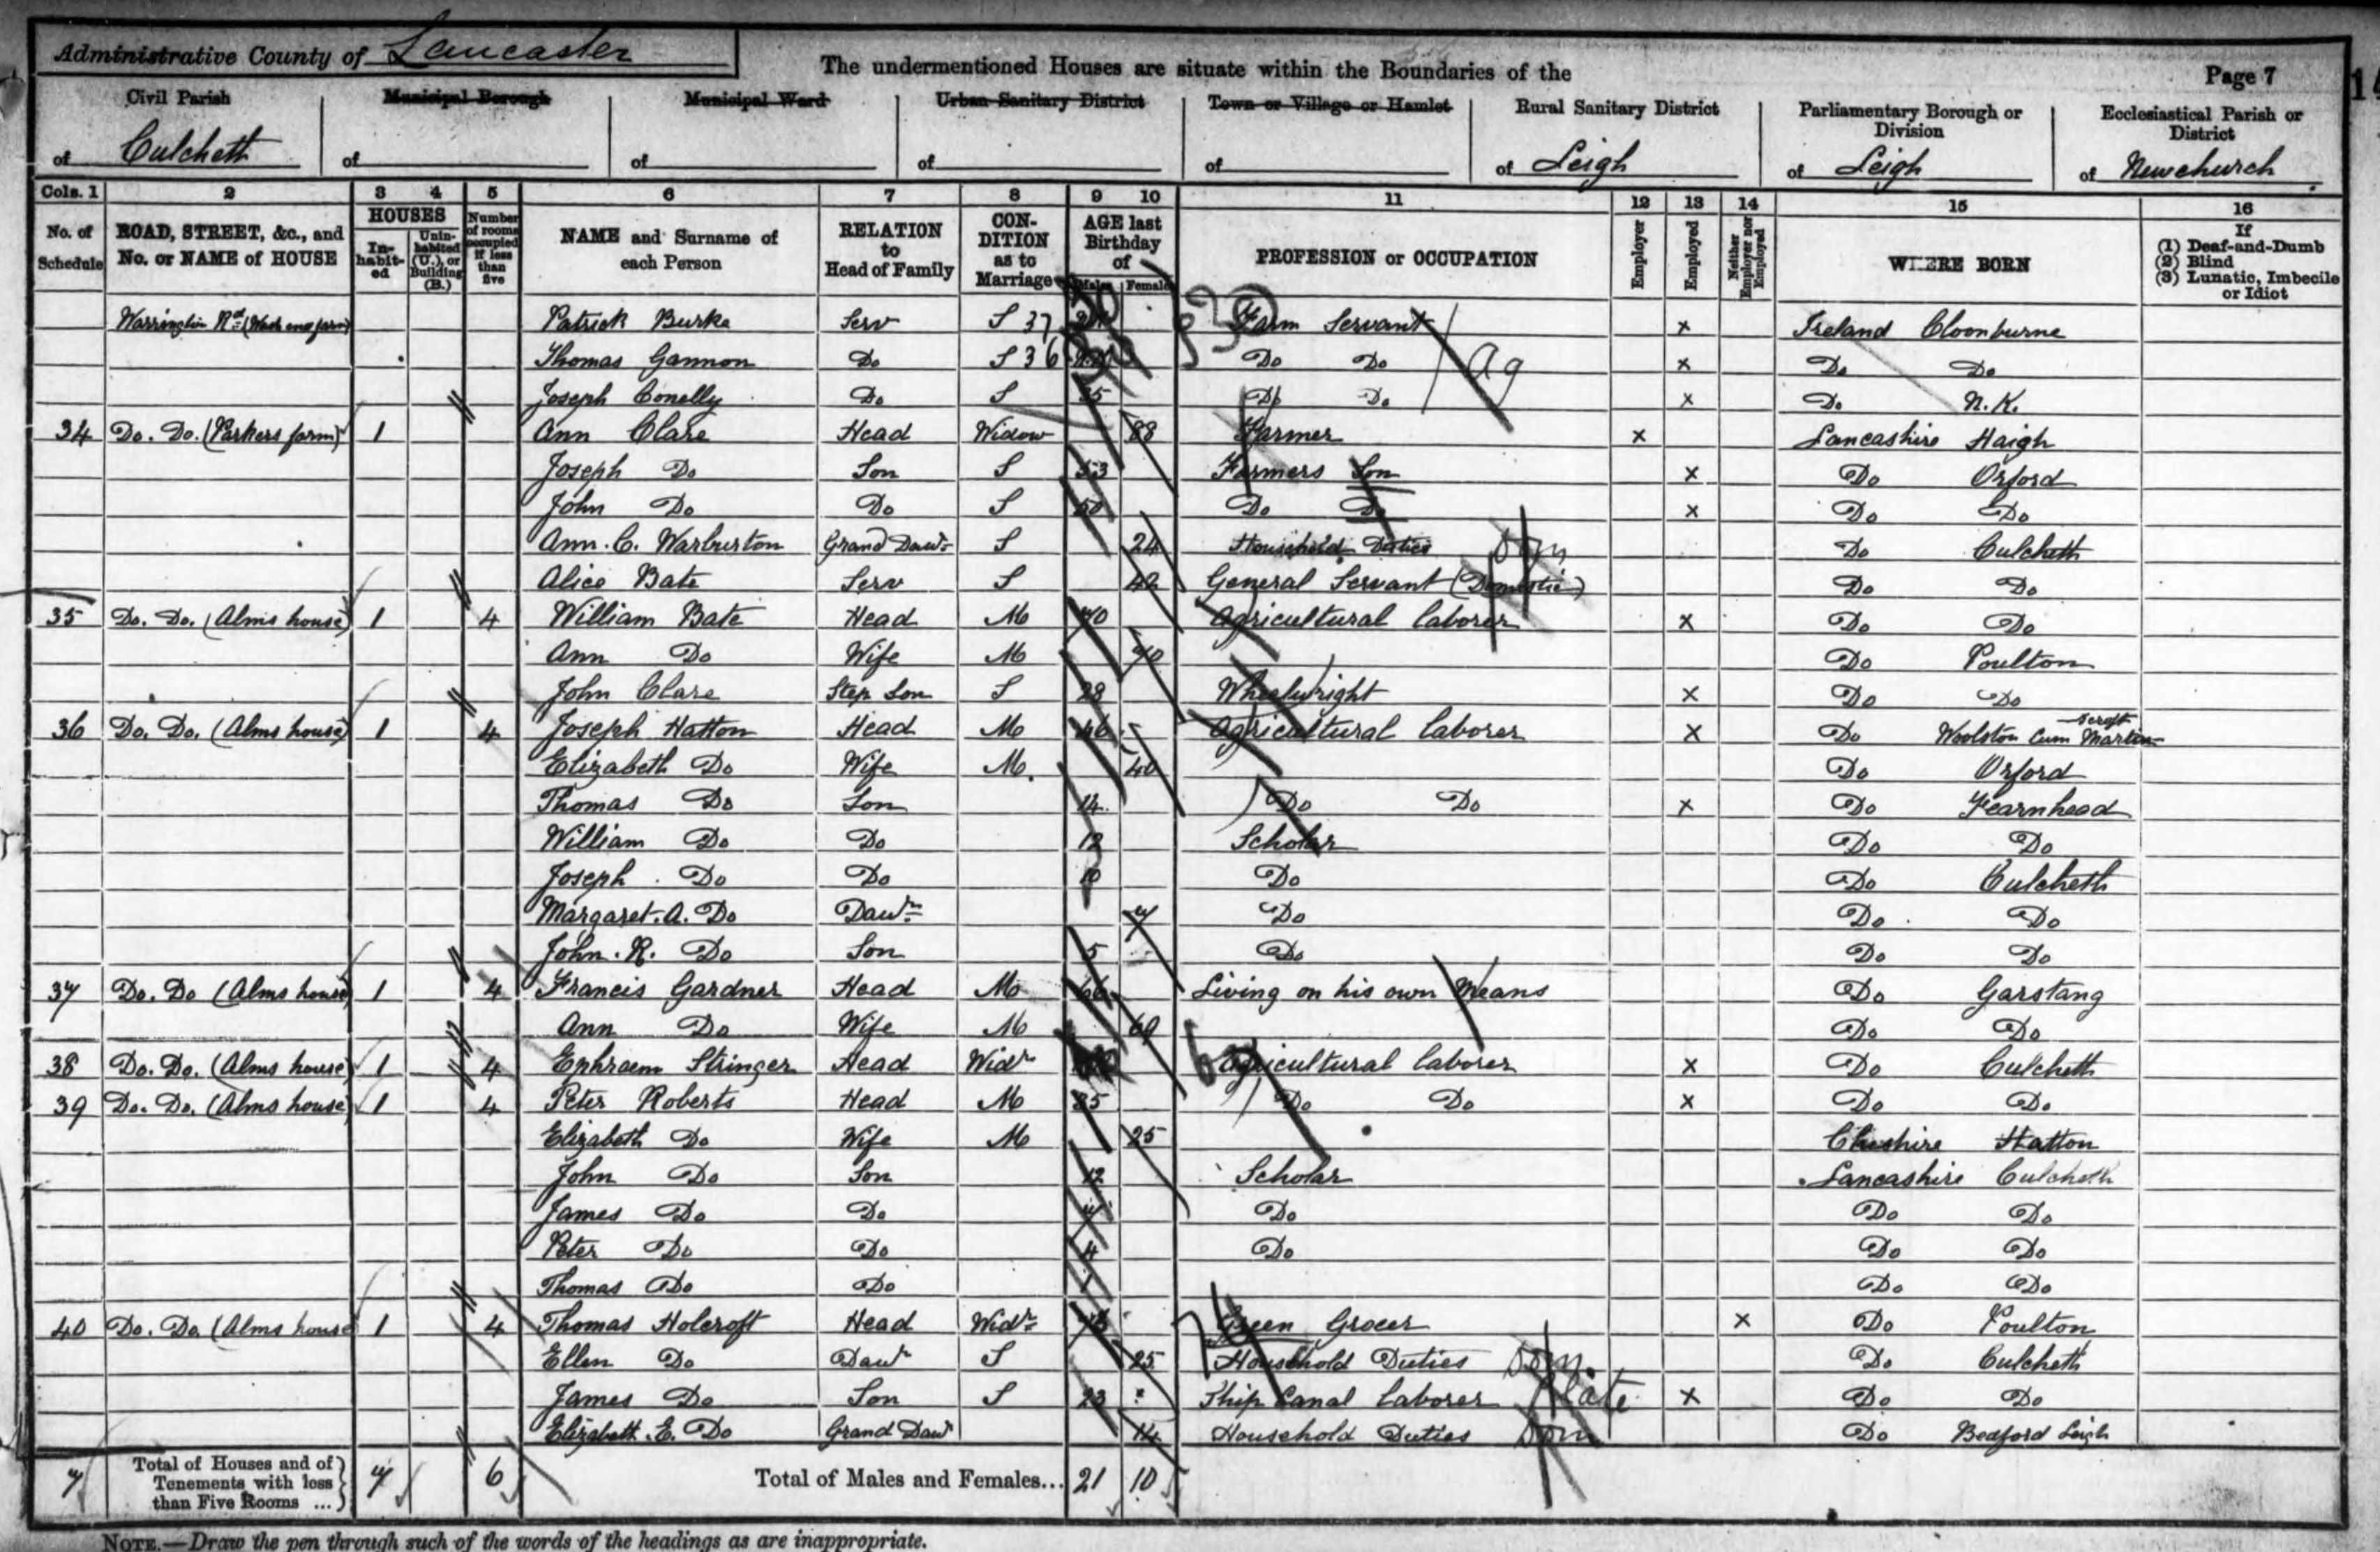 Administrative County of Lancaster
The undermentioned Houses are situate within the Boundaries of the
Page 7
Civil Parish of Culcheth
Municipal Borough of
Municipal Ward of
Urban Sanitary District of
Town or Village or Hamlet of
Rural Sanitary District of Leigh
Parliamentary Borough or Division of Leigh
Ecclesiastical Parish or District of Newchurch
Cols. 1 2 3 4 5 6 7 8 9 10 11 12 13 14 15 16
No. of Schedule
ROAD, STREET, &c., and No. or NAME of HOUSE
HOUSES
Inhabited
Uninhabited (U.), or Building (B.)
Number of rooms occupied if less than five
NAME and Surname of each Person
RELATION to Head of Family
CONDITION as to Marriage
AGE last Birthday of
Males Females
PROFESSION or OCCUPATION
Employer
Employed
Neither Employer nor Employed
WHERE BORN
If (1) Deaf-and-Dumb (2) Blind (3) Lunatic, Imbecile or Idiot
Warrington Rd Patrick Burke Serv S 37 Farm Servant x Ireland Cloonburne
Thomas Gannon Do S 36 Do Do Ag x Do Do
Joseph Conelly Do S Do Do x Do N.K.
34 Do. Do. (Parkers farm) 1 Ann Clare Head Widow 88 Farmer x Lancashire Haigh
Joseph Do Son S 53 Farmers Son x Do Orford
John Do Do S 50 Do Do x Do Do
Ann. C. Warburton Grand Dawr S 24 Household Duties Dom Do Culcheth
Alice Bate Serv S 42 General Servant (Domestic) Do Do
35 Do. Do. (Alms house) 1 4 William Bate Head M 70 Agricultural laborer x Do Do
Ann Do Wife M 70 Do Poulton
John Clare Step Son S 28 Wheelwright x Do Do
36 Do. Do. (Alms house) 1 4 Joseph Hatton Head M 46 Agricultural laborer x Do Woolston Cum Martinscroft
Elizabeth Do Wife M. 40 Do Orford
Thomas Do Son 14 Do Do x Do Fearnhead
William Do Do 12 Scholar Do Do
Joseph Do Do 10 Do Do Culcheth
Margaret. A. Do Dawr 7 Do Do Do
John. R. Do Son 5 Do Do Do
37 Do. Do (Alms house) 1 4 Francis Gardner Head M 66 Living on his own Means Do Garstang
Ann Do Wife M Do Do
38 Do. Do. (Alms house) 1 4 Ephraem Stringer Head Widr Agricultural laborer x Do Culcheth
39 Do. Do. (Alms house) 1 4 Peter Roberts Head M 35 Do Do x Do Do
Elizabeth Do Wife M 25 Cheshire Hatton
John Do Son 12 Scholar Lancashire Culcheth
James Do Do 7 Do Do Do
Peter Do Do 4 Do Do Do
Thomas Do Do 1 Do Do
40 Do. Do. (Alms house 1 4 Thomas Holcroft Head Widr Green Grocer x Do Poulton
Ellen Do Dawr S 25 Household Duties Dom. Do Culcheth
James Do Son S 23 Ship Canal laborer x Do Do
Elizabeth. E. Do Grand Dawr 14 Household Duties Dom Do Bedford Leigh
7 Total of Houses and of Tenements with less than Five Rooms ... 7 6 Total of Males and Females... 21 10
NOTE.—Draw the pen through such of the words of the headings as are inappropriate.